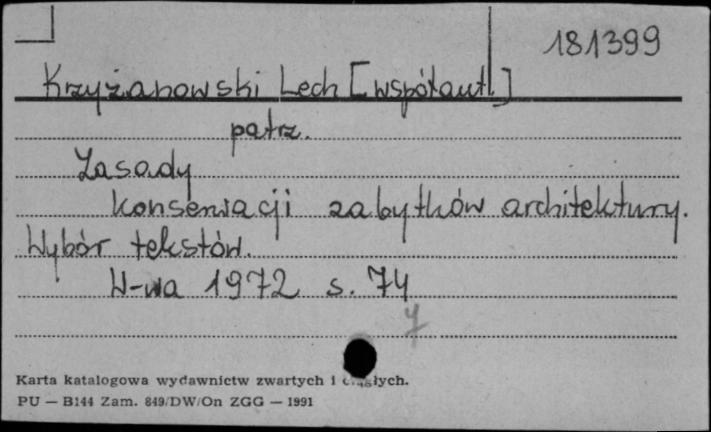 181399
Krzyżanowski Lech [współaut.]
patrz.
Zasady
konserwacji zabytków architektury.
Wybór tekstów.
W-wa 1972 s. 74
7
Karta katalogowa wydawnictw zwartych i ciągłych.
PU — B144 Zam. 849/DW/On ZGG — 1991